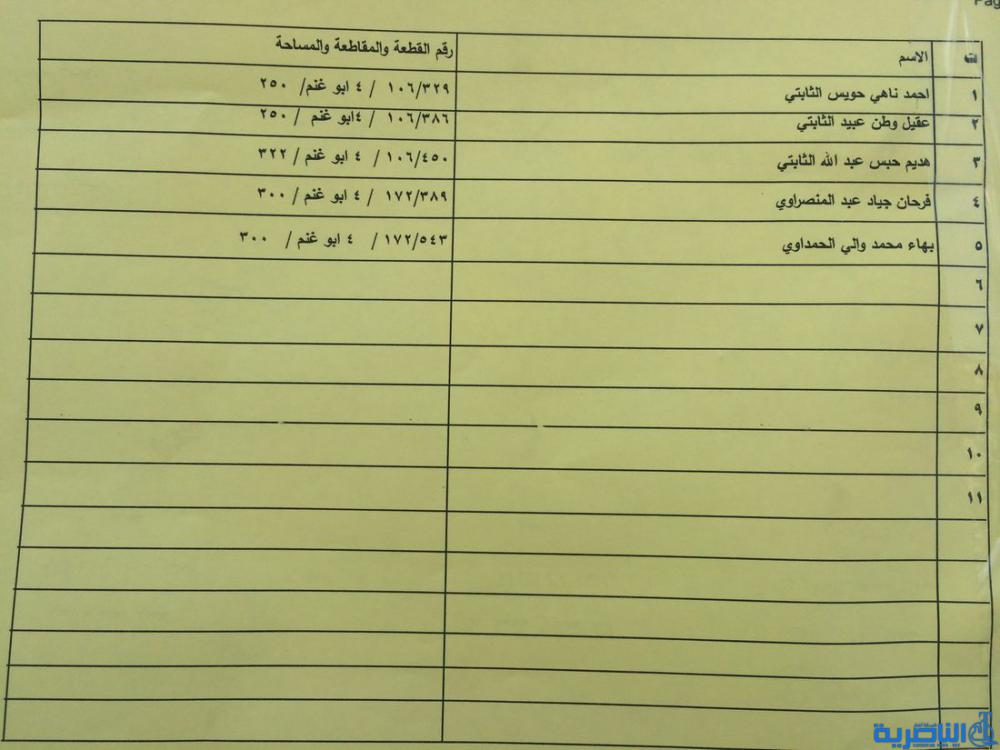 Pag
ت الاسم رقم القطعة والمقاطعة والمساحة
١ احمد ناهي حويس الثابتي ١٠٦/٣٢٩ / ٤ ابو غنم/ ٢٥٠
٢ عقيل وطن عبيد الثابتي ١٠٦/٣٨٦ / ٤ابو غنم / ٢٥٠
٣ هديم حبس عبد الله الثابتي ١٠٦/٤٥٠ / ٤ ابو غنم / ٣٢٢
٤ فرحان جياد عبد المنصراوي ١٧٢/٣٨٩ / ٤ ابو غنم / ٣٠٠
٥ بهاء محمد والي الحمداوي ١٧٢/٥٤٣ / ٤ ابو غنم / ٣٠٠
٦
٧
٨
٩
١٠
١١
الناصرية